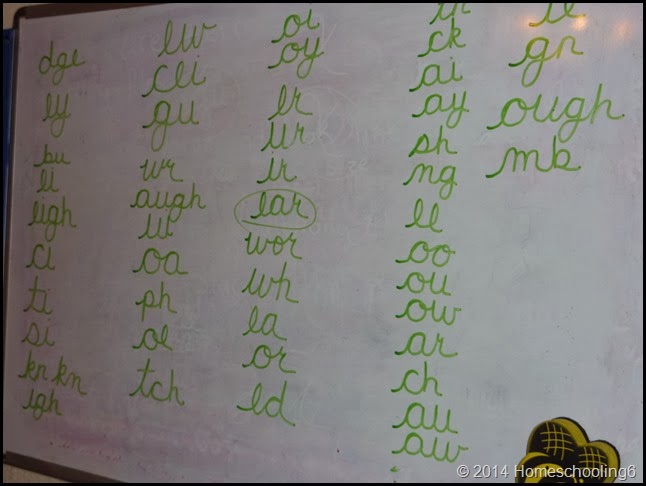 dge
ey
bu
ei
eigh
ci
ti
si
kn kn
igh
ew
cei
gu
wr
augh
ui
oa
ph
oe
tch
oi
oy
er
ur
ir
ear
wor
wh
ea
or
ed
ck
ai
ay
sh
ng
ee
oo
ou
ow
ar
ch
au
aw
gn
ough
mb
© 2014 Homeschooling6